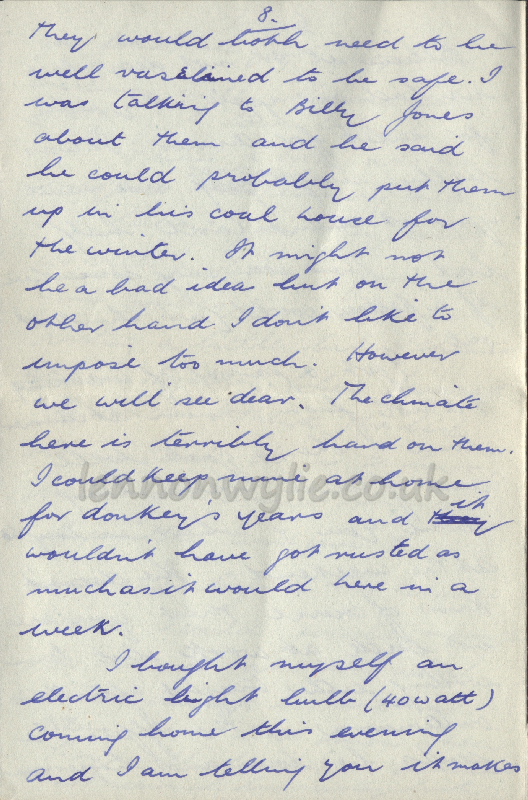 8.
they would both need to be
well vaselined to be safe. I
was talking to Billy Jones
about them and he said
he could probably put them
up in his coal house for
the winter. It might not
be a bad idea but on the
other hand I don't like to
impose too much. However
we will see dear. The climate
here is terribly hard on them.
I could keep mine at home
lennonwylie.co.uk
for donkey's years and they it
wouldn't have got rusted as
much as it would here in a
week.
I bought myself an
electric light bulb (40 watt)
coming home this evening
and I am telling you it makes